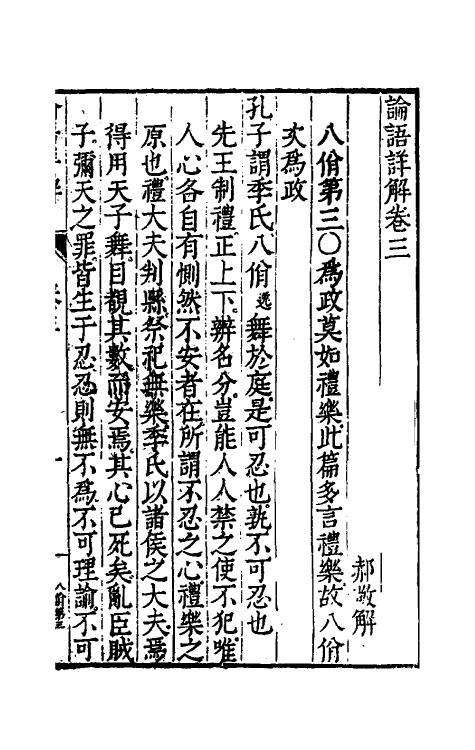 論語詳解卷三
郝敬解
八佾第三○爲政莫如禮樂此篇多言禮樂故八佾
次爲政
孔子謂季氏八佾逸舞於庭是可忍也孰不可忍也
先王制禮正上下辨名分豈能人人禁之使不犯唯
人心各自有惻然不安者在所謂不忍之心禮樂之
原也禮大夫判縣祭祀無樂季氏以諸侯之大夫焉
得用天子舞目覩其數而安焉其心已死矣亂臣賊
子彌天之罪皆生于忍忍則無不爲不可理諭不可
八佾第三